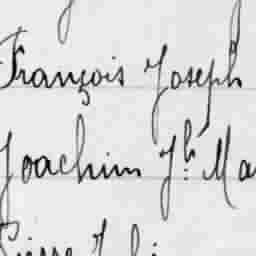 François Joseph
Joachim Jh. Ma
Pierre